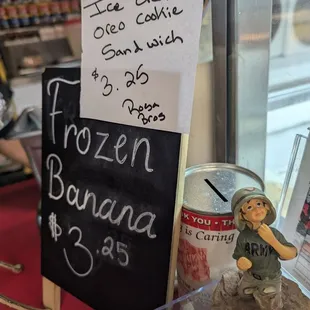 Ice Cream
Oreo Cookie
Sandwich
$3.25
Rosa
Bros
Frozen
Banana
$3.25
YOU THANK
is Caring
ARMY